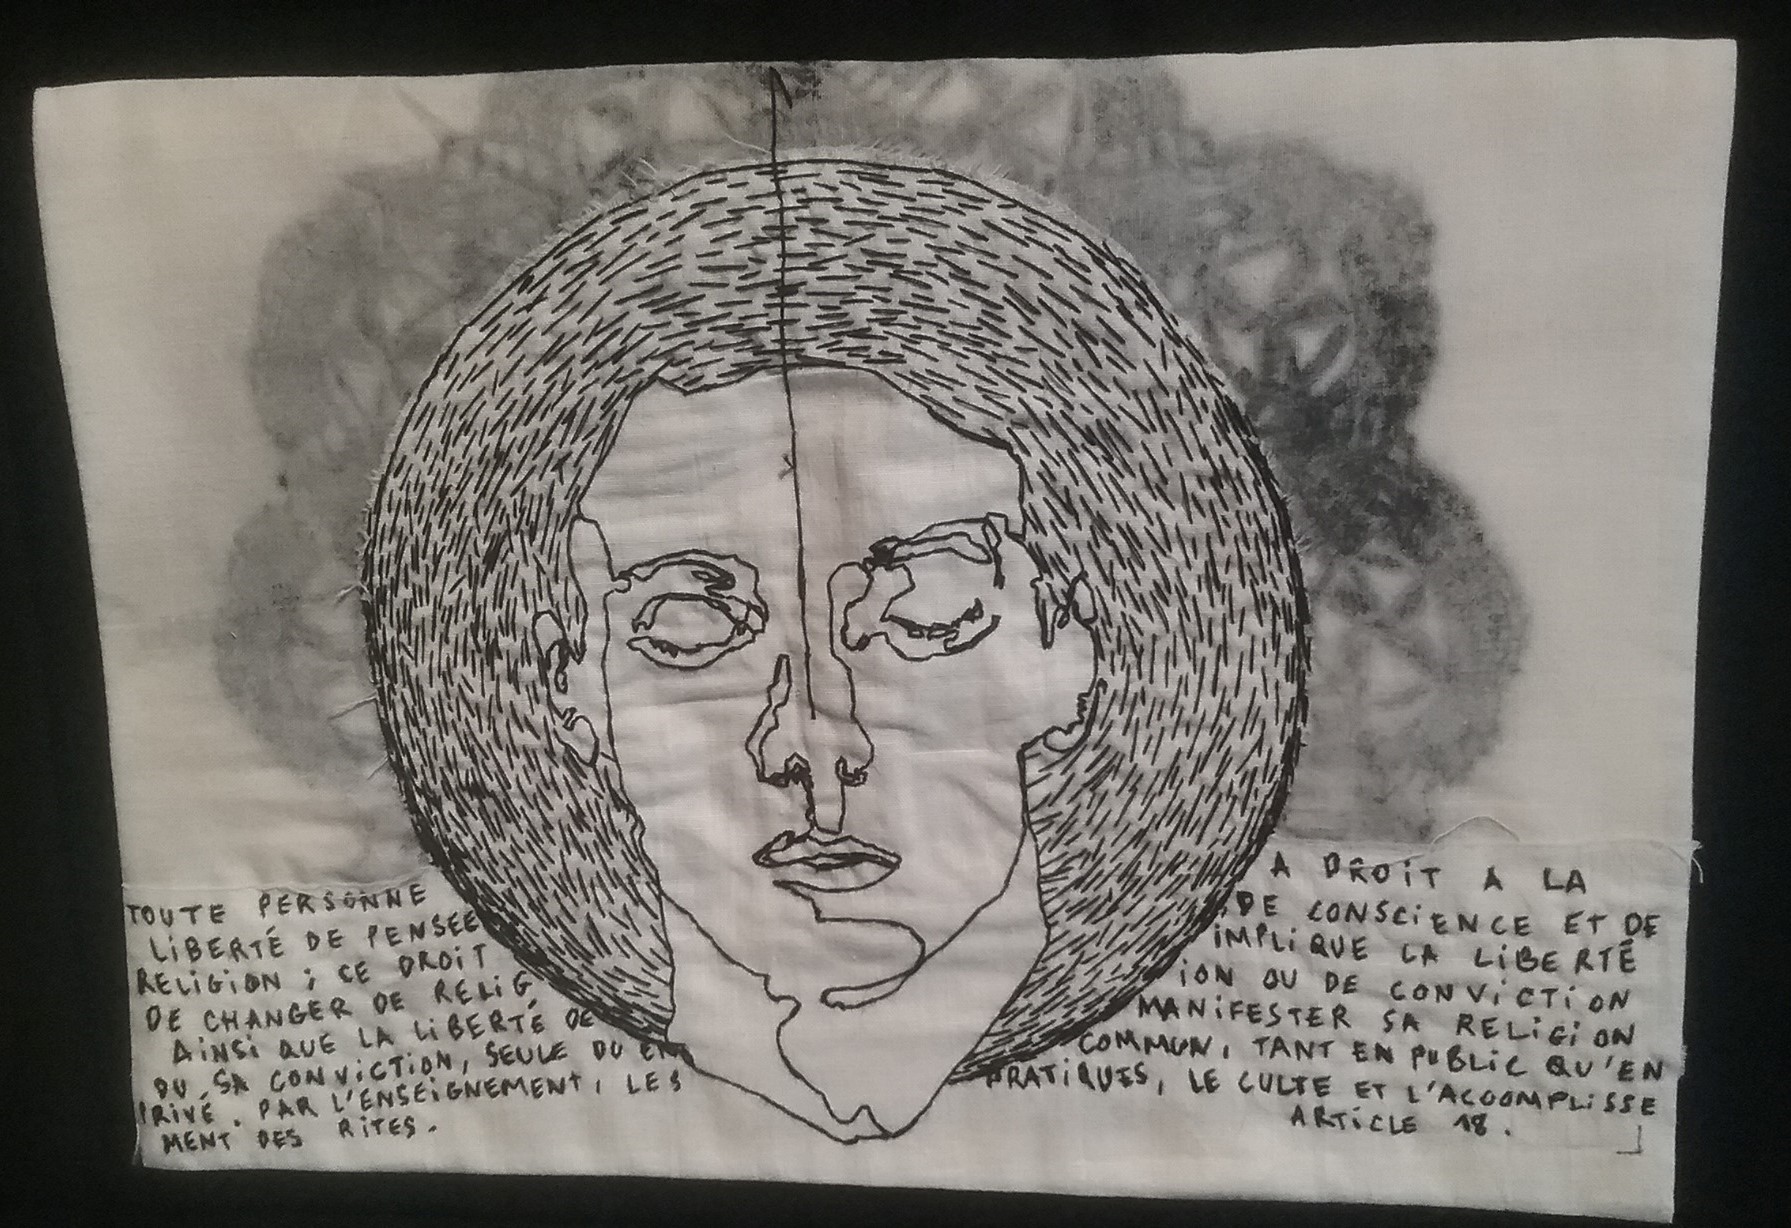 TOUTE PERSONNE A DROIT A LA
LIBERTÉ DE PENSEE, DE CONSCIENCE ET DE
RELIGION ; CE DROIT IMPLIQUE LA LIBERTÉ
DE CHANGER DE RELIG ION OU DE CONVICTION
AINSI QUE LA LIBERTÉ DE MANIFESTER SA RELIGION
OU SA CONVICTION, SEULE OU EN COMMUN, TANT EN PUBLIC QU'EN
PRIVÉ. PAR L'ENSEIGNEMENT, LES PRATIQUES, LE CULTE ET L'ACCOMPLISSE
MENT DES RITES. ARTICLE 18.